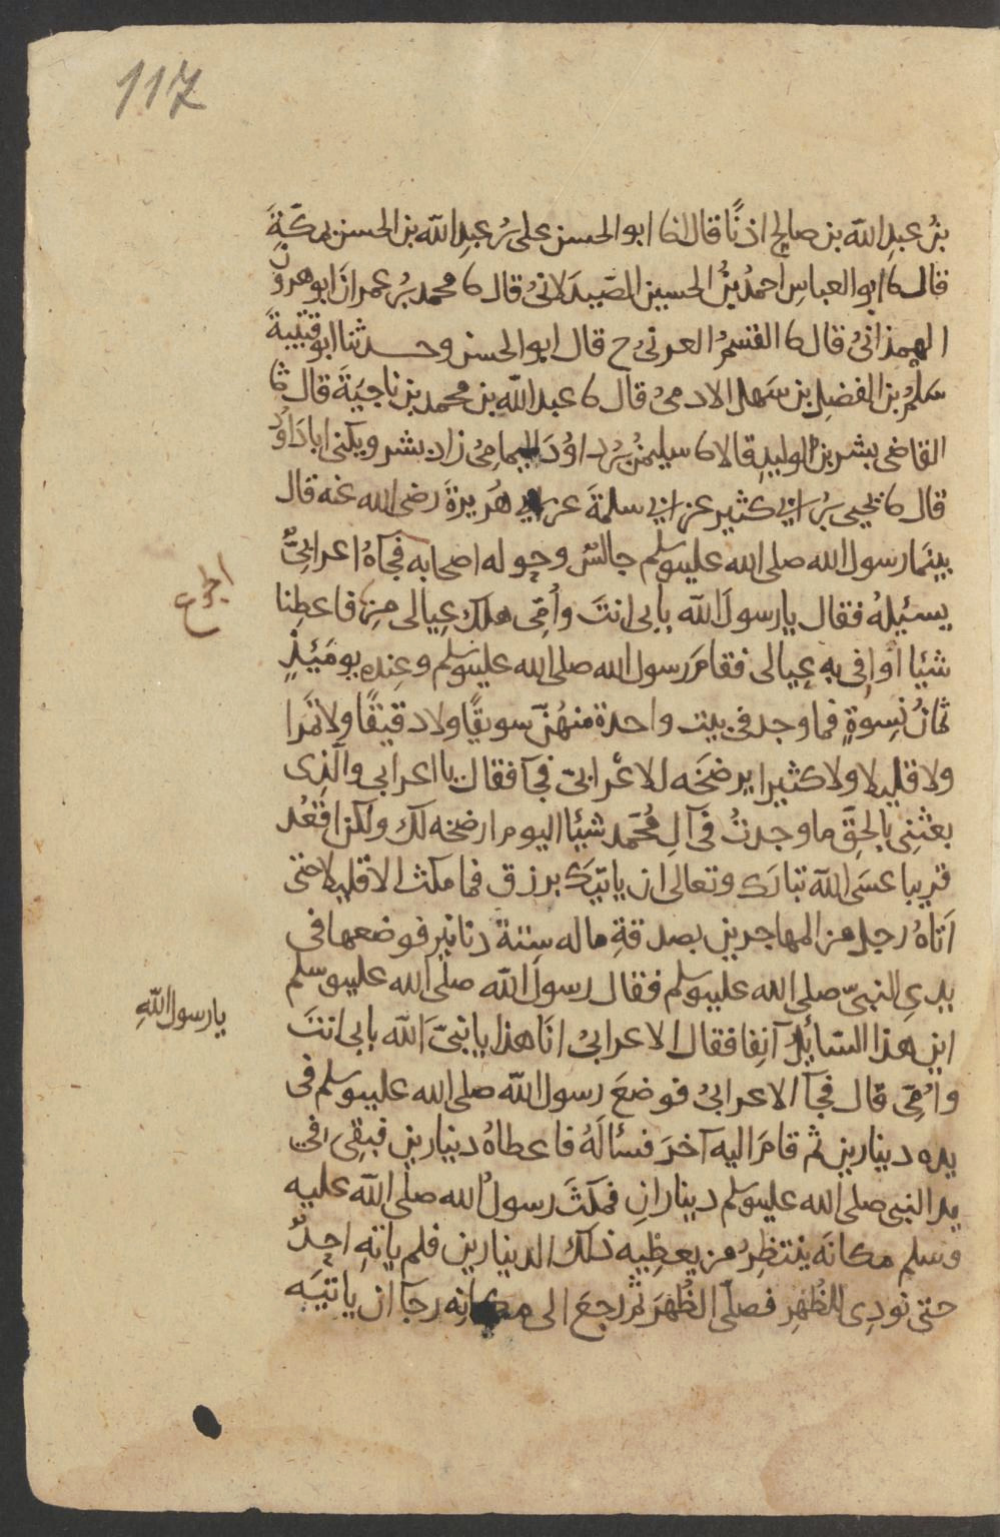 117
بنُ عبدِ الله بن صالح اذنًا قال انا ابو الحسن على بنُ عبدِ الله بن الحسن بمكّةَ
قال نا ابو العباسِ احمدُ بنُ الحسين الصّيدلانىُ قال نا محمد بنُ عمرانَ ابو هرونَ
الهمذانىُ قال نا القسمُ العرنىُ ح قال ابو الحسن وحدثنا ابو قتيبةَ
سلمُ بن الفضلِ بن سَهل الادمىُ قال نا عبد الله بن محمد بن ناجيَةَ قال ثنا
القاضى بشر بن الوليدِ قالا نا سليمنُ بنُ داوُدَ اليمامِىُ زاد بشر ويكنى ابا داوُد
قال نا يحيى بنُ ابي كثير عن ابي سلمةَ عن ابي هُريرةَ رضى الله عنه قال
بينَما رسول الله صلى الله عليه وسلم جالسٌ وحوله اصحابه فجآهُ اعرابىٌّ
يسئيلهُ فقال يا رسولَ الله بابى انتَ وأُمِّى هلك عِيالى مِن فاعطِنا
الجوع
شئيا أُوافِى به عِيالى فقامَ رسول الله صلى الله عليه وسلم وعِنده يومَئِذٍ
ثمانُ نِسوةٍ فما وجد فى بيت واحدة منهُنّ سويقًا ولا دقيقًا ولا تمَرا
ولا قليلا ولا كثيرا يرضخَه للاعْرابىّ فجآ فقال يا اعرابى والّذِى
بعثَنِى بالحقِّ ما وجدتُ فى آلِ مُحَمد شيئا اليوم ارضخه لك ولكن اقعُد
قريبا عسَى الله تبارَك وتعالى ان ياتيَك برزق فما مكث الا قليلا حتى
اَتاهُ رجل من المهاجرين بصدقةِ ماله سِتةُ دنانير فوضعها فى
يدىِ النبىّ صلى الله عليه وسلم فقال رسولُ الله صلّى الله عليه وسلم
اين هذا السّائِلُ آنِفا فقال الاعرابىُ انَا هذا يا نبىّ الله بابى انتَ
يا رسول اللهِ
وأُمِّى قال فجآ الاعرابىُ فوضعَ رسول الله صلى الله عليه وسلم فى
يده دينارين ثم قامَ اليه آخرَ فسئالَهُ فاعطاهُ دينارين فبقِىَ فى
يد النبى صلى الله عليه وسلم دينارانِ فمكثَ رسولُ الله صلّى الله عليه
وسلم مكانَه ينتظِرُ من يعطِيه ذلك الدينارين فلم ياتهِ احدٌ
حتى نودِى للظُهرِ فصلّى الظُهرَ ثم رجعَ الى مكانِه رجآ ان ياتيَه